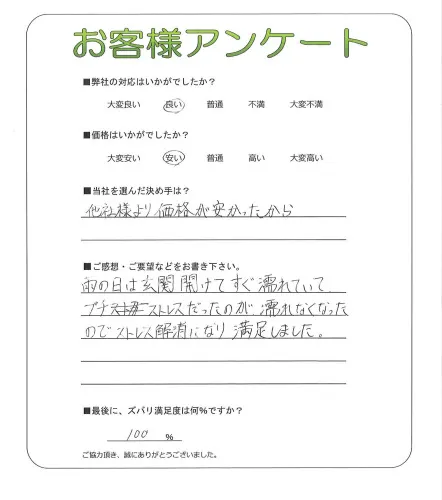 お客様アンケート
■弊社の対応はいかがでしたか?
大変良い 良い 普通 不満 大変不満
■価格はいかがでしたか?
大変安い 安い 普通 高い 大変高い
■当社を選んだ決め手は?
他社様より価格が安かったから
■ご感想・ご要望などをお書き下さい。
雨の日は玄関開けてすぐ濡れていて
プチストレスだったのが濡れなくなった
のでストレス解消になり満足しました。
■最後に、ズバリ満足度は何%ですか?
100 %
ご協力頂き、誠にありがとうございました。